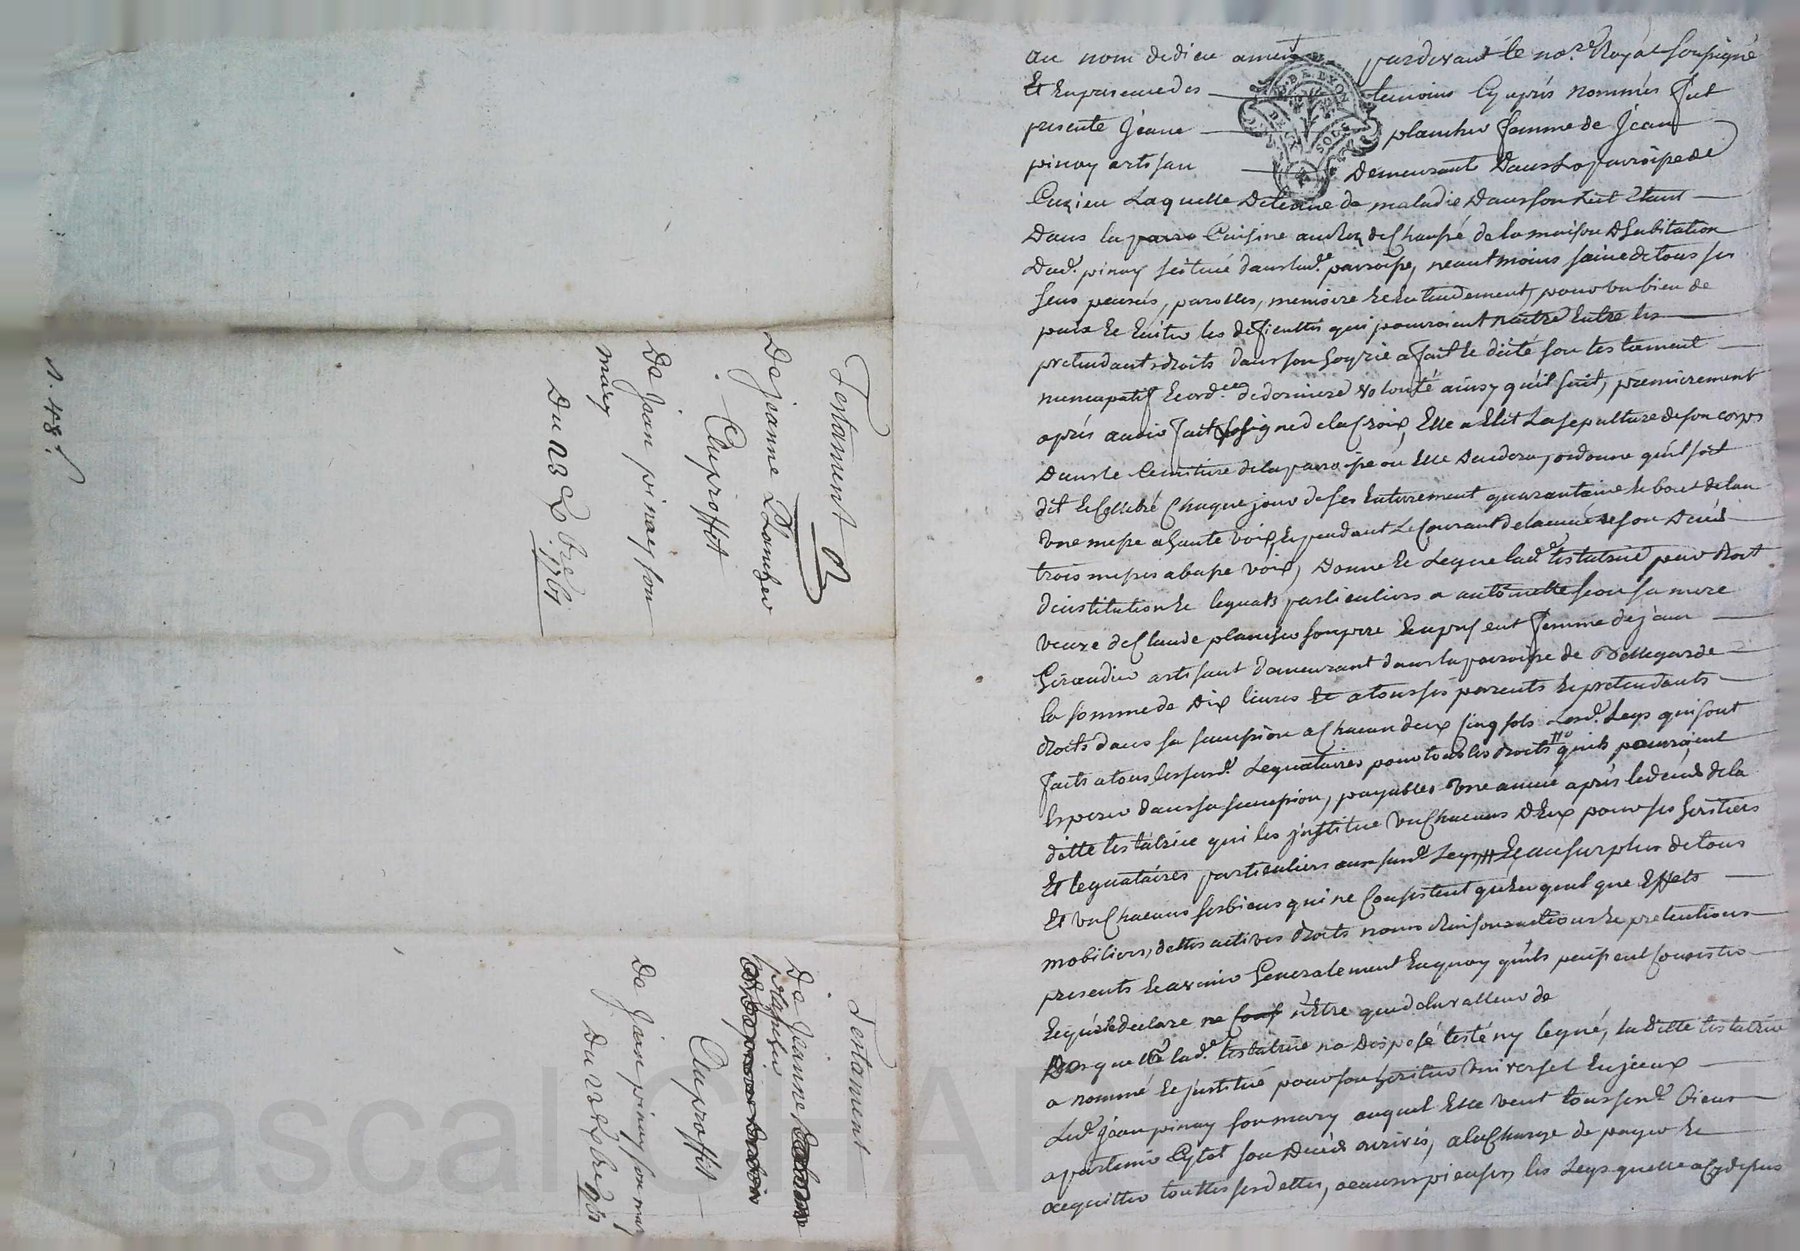 Testament
De jeanne Plancher
Auproffit
De Jean pinay son
mary
Du 23 xbre 1761
n. 48.
Testament
De jeanne
plancher
Auproffit
De Jean pinay son mary
Du 23 xbre 1761
au nom de dieu amen pardevant le nore Royal soussigné
Et En presence des temoins Cy aprés nommés fut
presente Jeane plancher femme de Jean
pinay artisan Demeurant Dans La parroisse de
Cuzieu Laquelle Detenue de maladie Dans son Lict Etant
Dans la Cuisine au rez de Chaussé de la maison D'habitation
Dud. pinay scituée dans lad.e parroisse, neantmoins saine de tous ses
sens pensés, parolles, memoire Et Entendement, pour un bien de
paix Et Eviter les deficultés qui pourroient naitre Entre les
pretendants droits dans son hoyrie a fait Et dicté son testament
nuncupatif Et ord.ce de derniere volonté ainsy qu'il suit, premierement
aprés avoir fait le signe de la Croix, Elle a Elit La sepulture de son corps
Dans le Cemitiere de la parroisse ou Elle Decedera, ordonne qu'il soit
dit Et Celebré Chaque jour de ses Enterrement quarantaine Et bout de lan
Une messe a haute voix, Et pendant Le Courant de lannée de son Decés
trois messes a basse voix, Donne Et Legue lad.e testatrice pour droit
d'institution Et leguats particuliers a antoinette sa mere
veuve de Claude plancher son pere Et a present femme de jean
Giraudier artisant demeurant dans la parroisse de Bellegarde
la somme de dix livres Et a tous ses parents Et pretendants
droits dans sa succession a Chacun deux Cinq sols Lesd. Legs qui sont
faits a tous les susd. Leguataires pour tous les droits qu'ils pourroient
Esperer dans sa succession, payables Une année aprés le decés de la
ditte testatrice qui les institue Un Chacuns D'Eux pour ses heritiers
Et leguataires particuliers aux susd. Legs Et au surplus de tous
Et Un Chacuns ses biens qui ne Consistent qu'En quelque Effets
mobiliers, dettes actives droits noms Raisons actions Et pretentions
presents Et avenir Generalement En quoy qu'ils puissent Consister
Et quelle declare n'Etre que de la valleur de
Desquelle lad.e testatrice na Disposé testé ny legué, La ditte testatrice
a nommé Et institué pour son heritier Universel En jceux
Led. jean pinay son mary auquel Elle veut tous ses d. biens
apartenir Sytot son Decés arrivés, a la Charge de payer Et
acquitter touttes ses dettes, oeuvres pieuses, les Legs quelle a Cy dessus
Pascal CHA